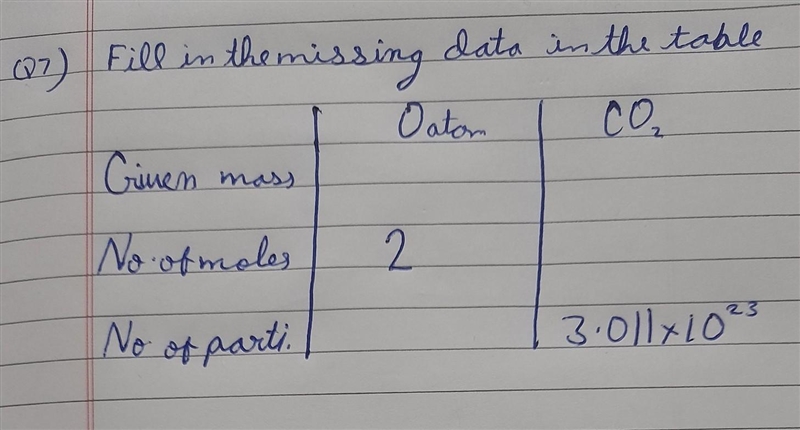 Q7) Fill in the missing data in the table
O atom CO₂
Given mass
No. of moles 2
No of parti. 3.011×10²³